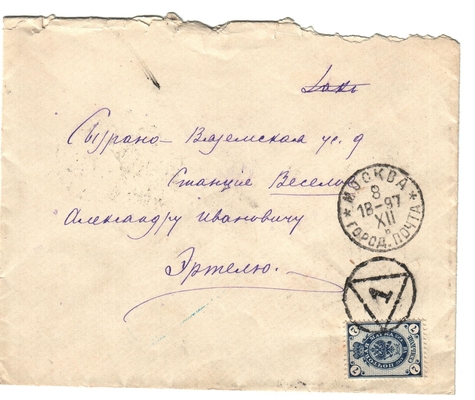 Заказ
Сызрано-Вяземская ж. д
Станция Веселое
Александру Ивановичу
Эртелю.
МОСКВА
8
18-97
XII
ГОРОД. ПОЧТА
1
7 7
7 7